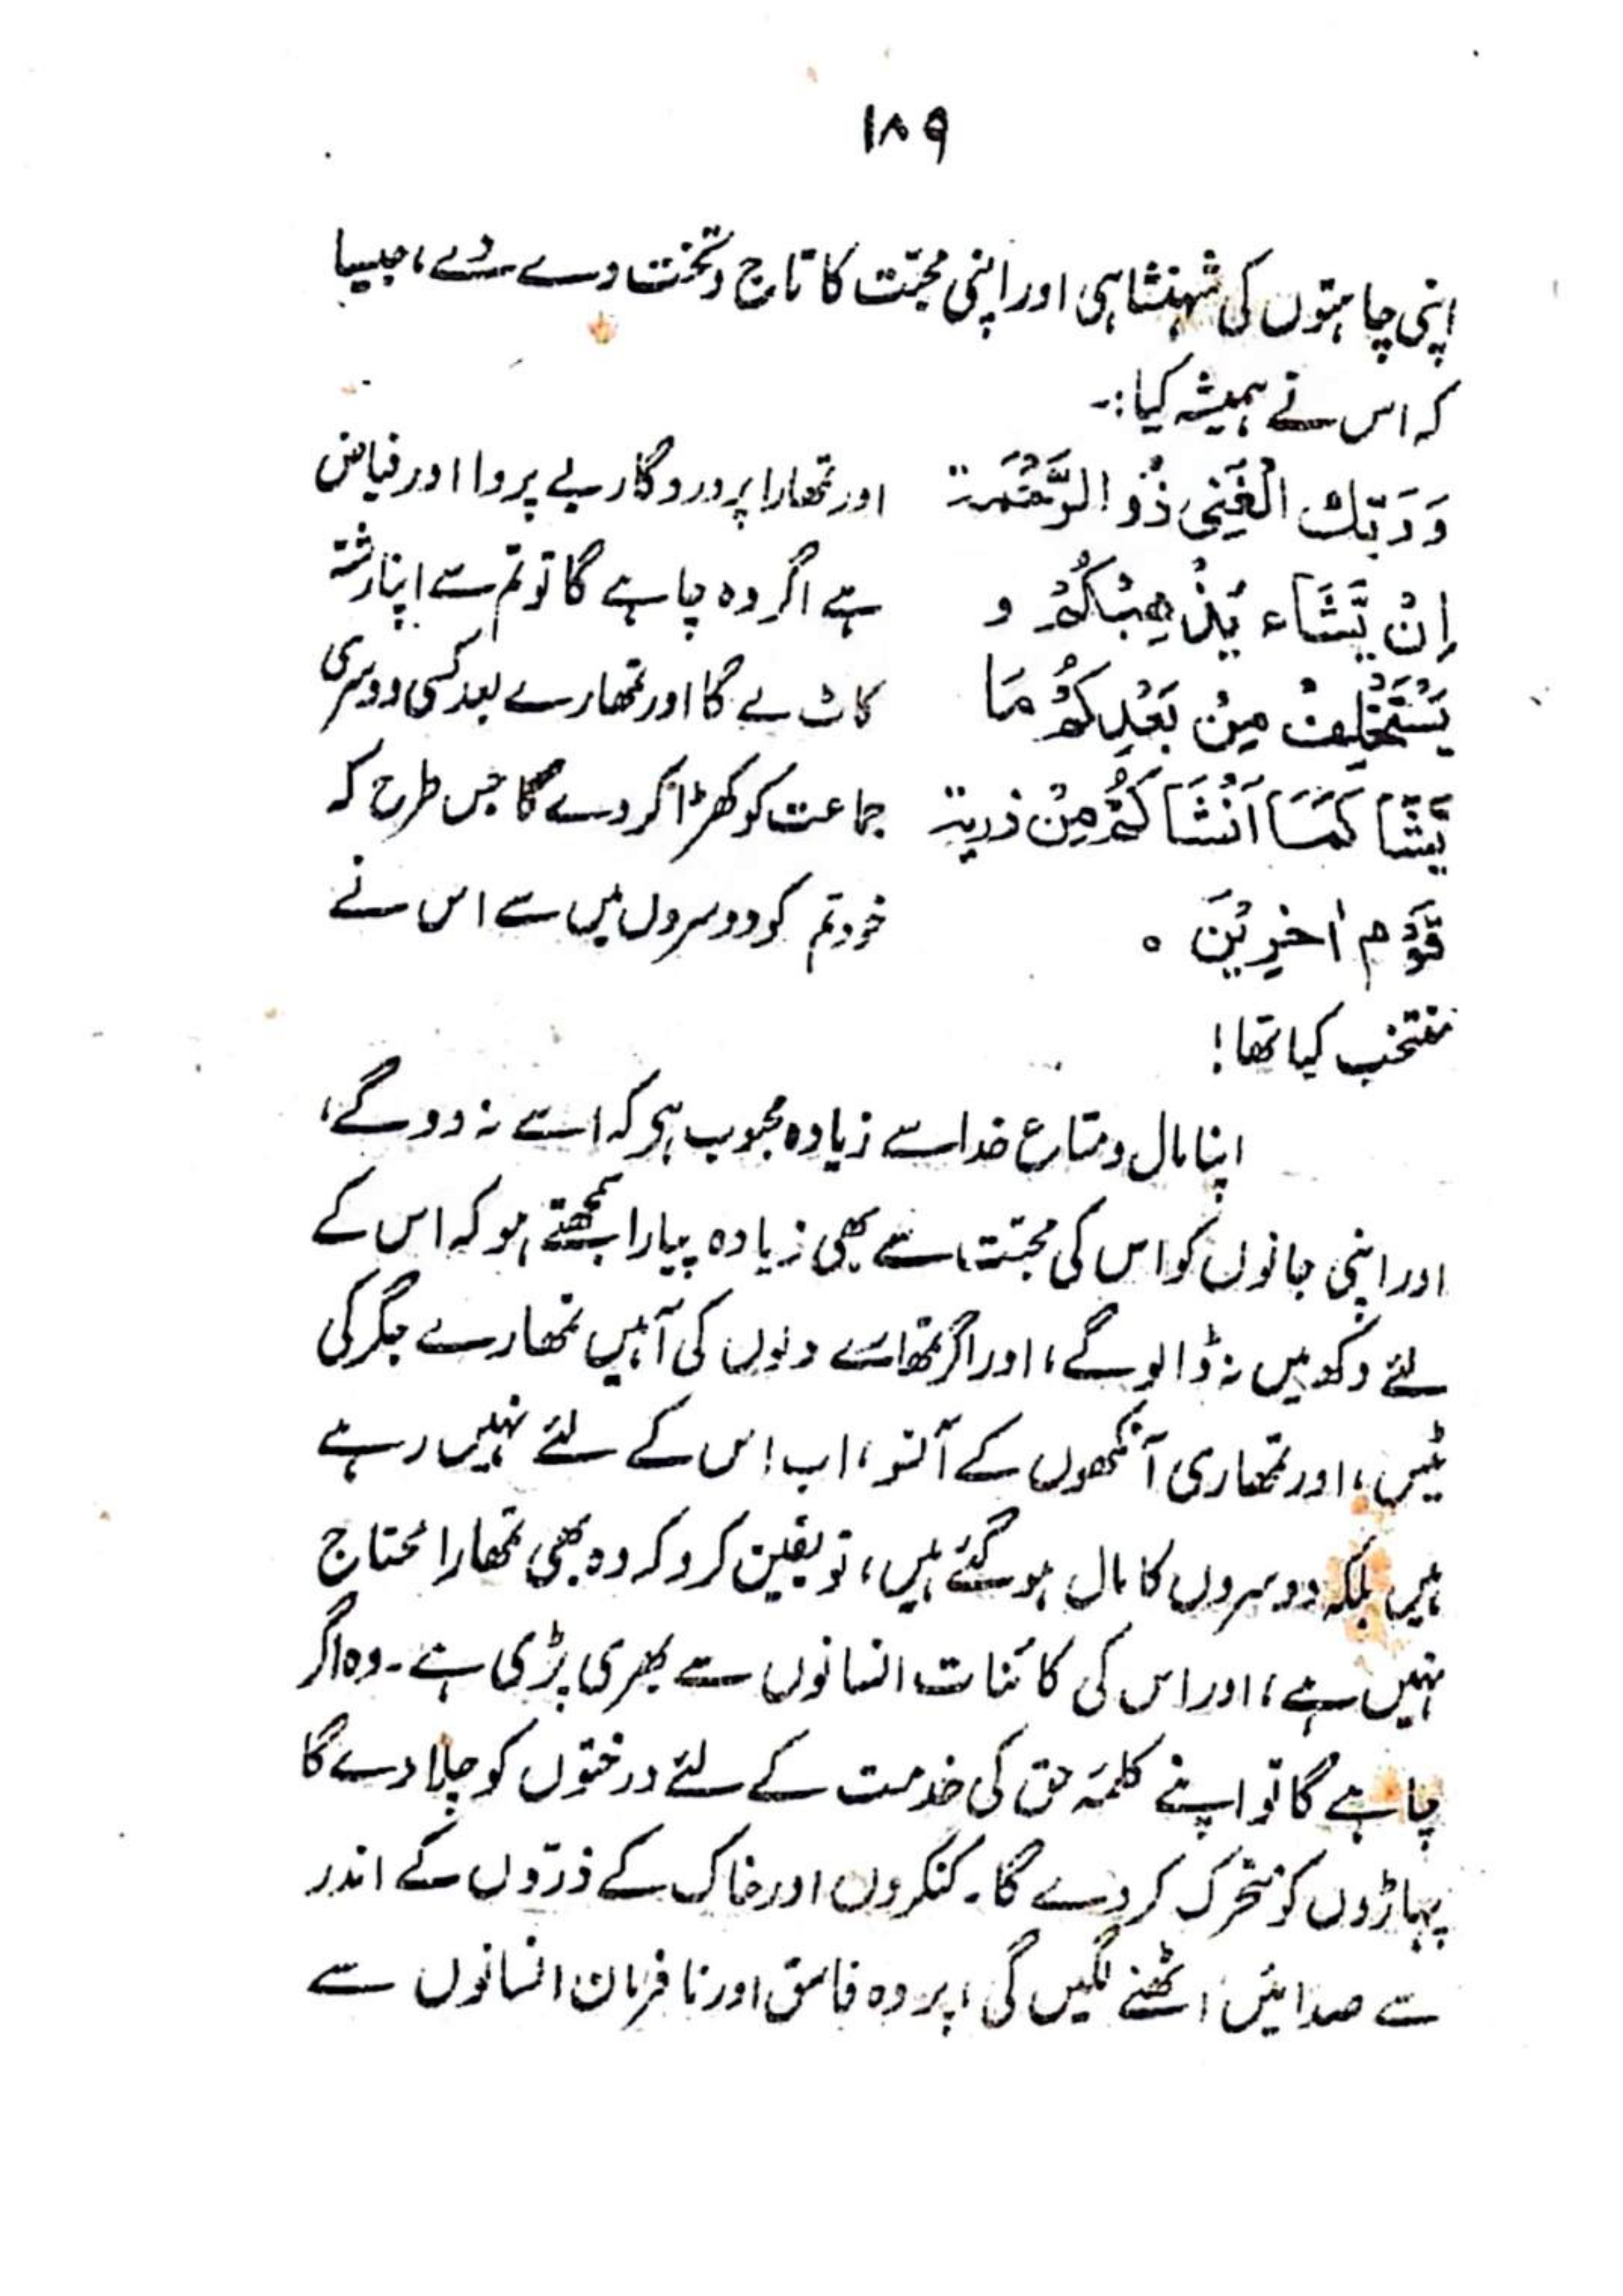 ۱۸۹
اپنی چاہتوں کی شہنشاہی اور اپنی محبّت کا تاج و تخت دے دے، جیسا
کہ اس نے ہمیشہ کیا:۔
وَرَبّك الْغَنِیُ ذُو الرَّحْمَة اور تمھارا پروردگار بے پروا اور فیاض
اِنْ یَّشَاء یُذْھِبْکُمْ و ہے اگر وہ چاہے گا تو تم سے اپنا رشتہ
یَسْتَخْلِفْ مِنْ بَعْدِکُمْ مَا کاٹ لے گا اور تمھارے بعد کسی دوسری
یَّشَا کَمَا اَنْشَا کُمْ مِنْ ذریة جماعت کو کھڑا کر دے گا جس طرح کہ
قَوْم اٰخِرِیْنَ ۰ خود تم کو دوسروں میں سے اس نے
منتخب کیا تھا!
اپنا مال و متاع خدا سے زیادہ محبوب ہو کہ اسے نہ دو گے،
اور اپنی جانوں کو اس کی محبّت سے بھی زیادہ پیارا سمجھتے ہو کہ اس کے
لئے دکھ میں نہ ڈالو گے، اور اگر تمھارے دلوں کی آہیں تمھارے جگر کی
ٹیس، اور تمھاری آنکھوں کے آنسو، اب اس کے لئے نہیں رہے
ہیں بلکہ دوسروں کا مال ہو گئے ہیں، تو یقین کرو کہ وہ بھی تمھارا محتاج
نہیں ہے، اور اس کی کائنات انسانوں سے بھری پڑی ہے۔ وہ اگر
چاہے گا تو اپنے کلمۂ حق کی خدمت کے لئے درختوں کو چلا دے گا
پہاڑوں کو متحرک کر دے گا۔ کنکروں اور خاک کے ذرّوں کے اندر
سے صدائیں اٹھنے لگیں گی، پر وہ فاسق اور نافرمان انسانوں سے